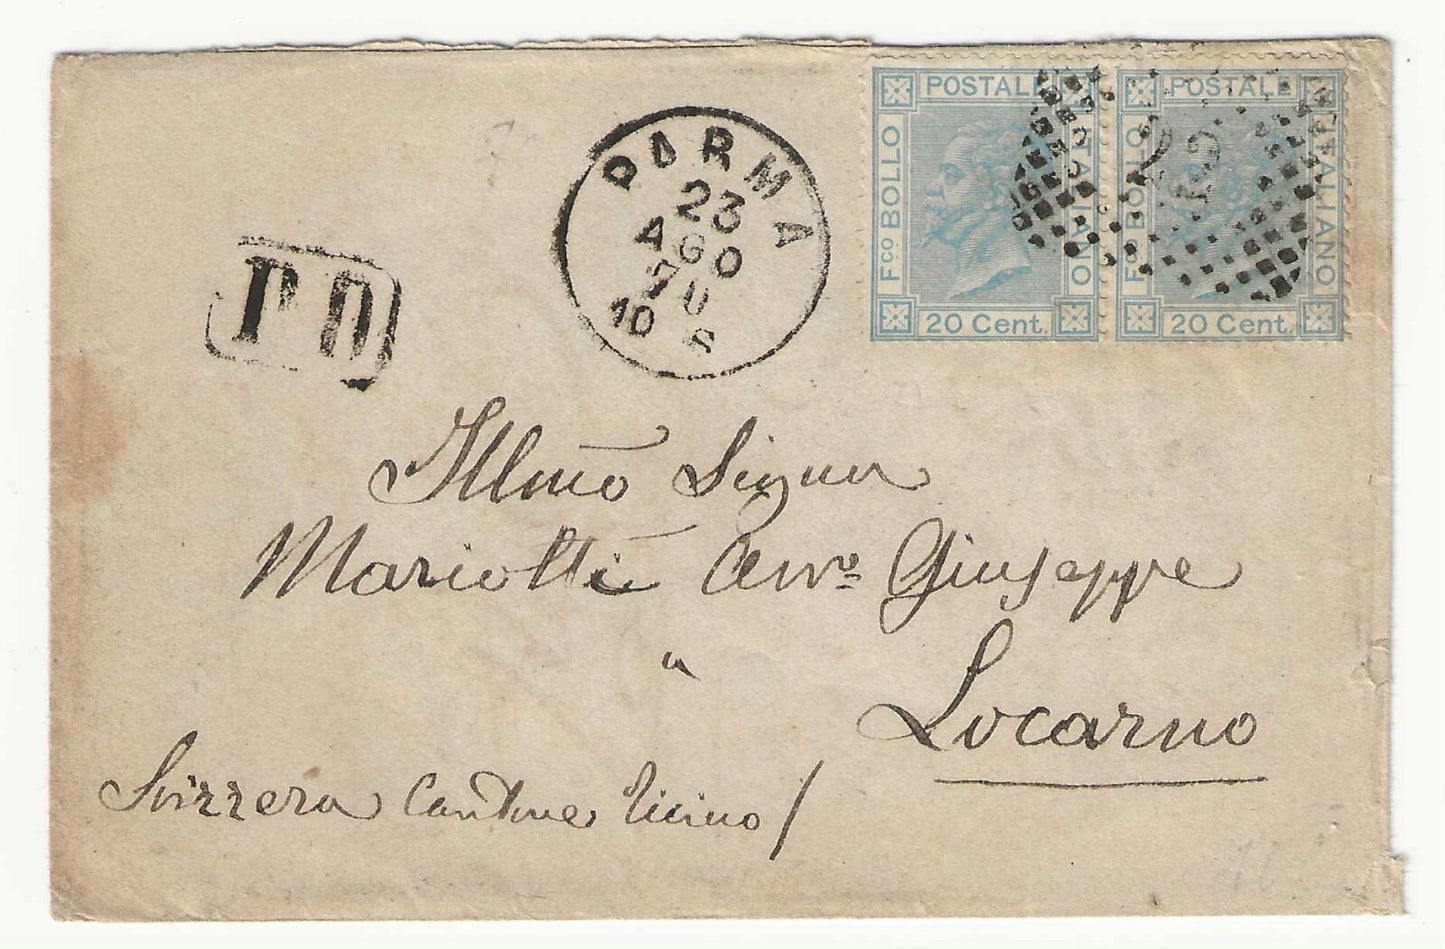 POSTALE
Fco BOLLO
ITALIANO
20 Cent.
POSTALE
Fco BOLLO
ITALIANO
20 Cent.
PARMA
23
AGO
70
10 S
P D
Illmo Signor
Mariotti Avvo Giuseppe
"
Locarno
Svizzera Cantone Ticino /